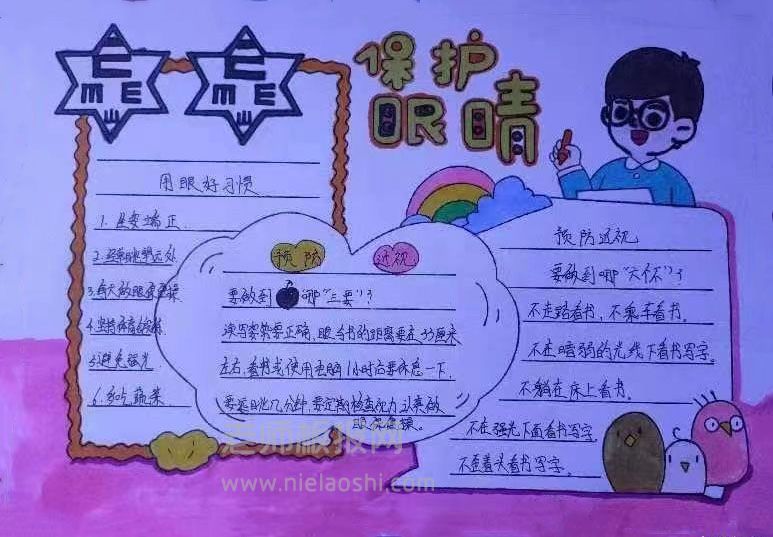 E
M E
E
M E
保护
眼睛
用眼好习惯
1. 坐姿端正
2. 经常眺望远处
3. 每天做眼保健操
4. 坚持体育锻炼
5. 避免强光
6. 多吃蔬菜
预防 近视
要做到哪"三要"?
读写姿势要正确,眼与书的距离要在33厘米
左右,看书或使用电脑1小时后要休息一下,
要远眺几分钟,要定期检查视力,认真做
眼保健操。
预防近视
要做到哪"六个不"?
不走路看书,不乘车看书。
不在暗弱的光线下看书写字。
不躺在床上看书。
不在强光下面看书写字。
不歪着头看书写字。
老师板报网
www.nielaoshi.com